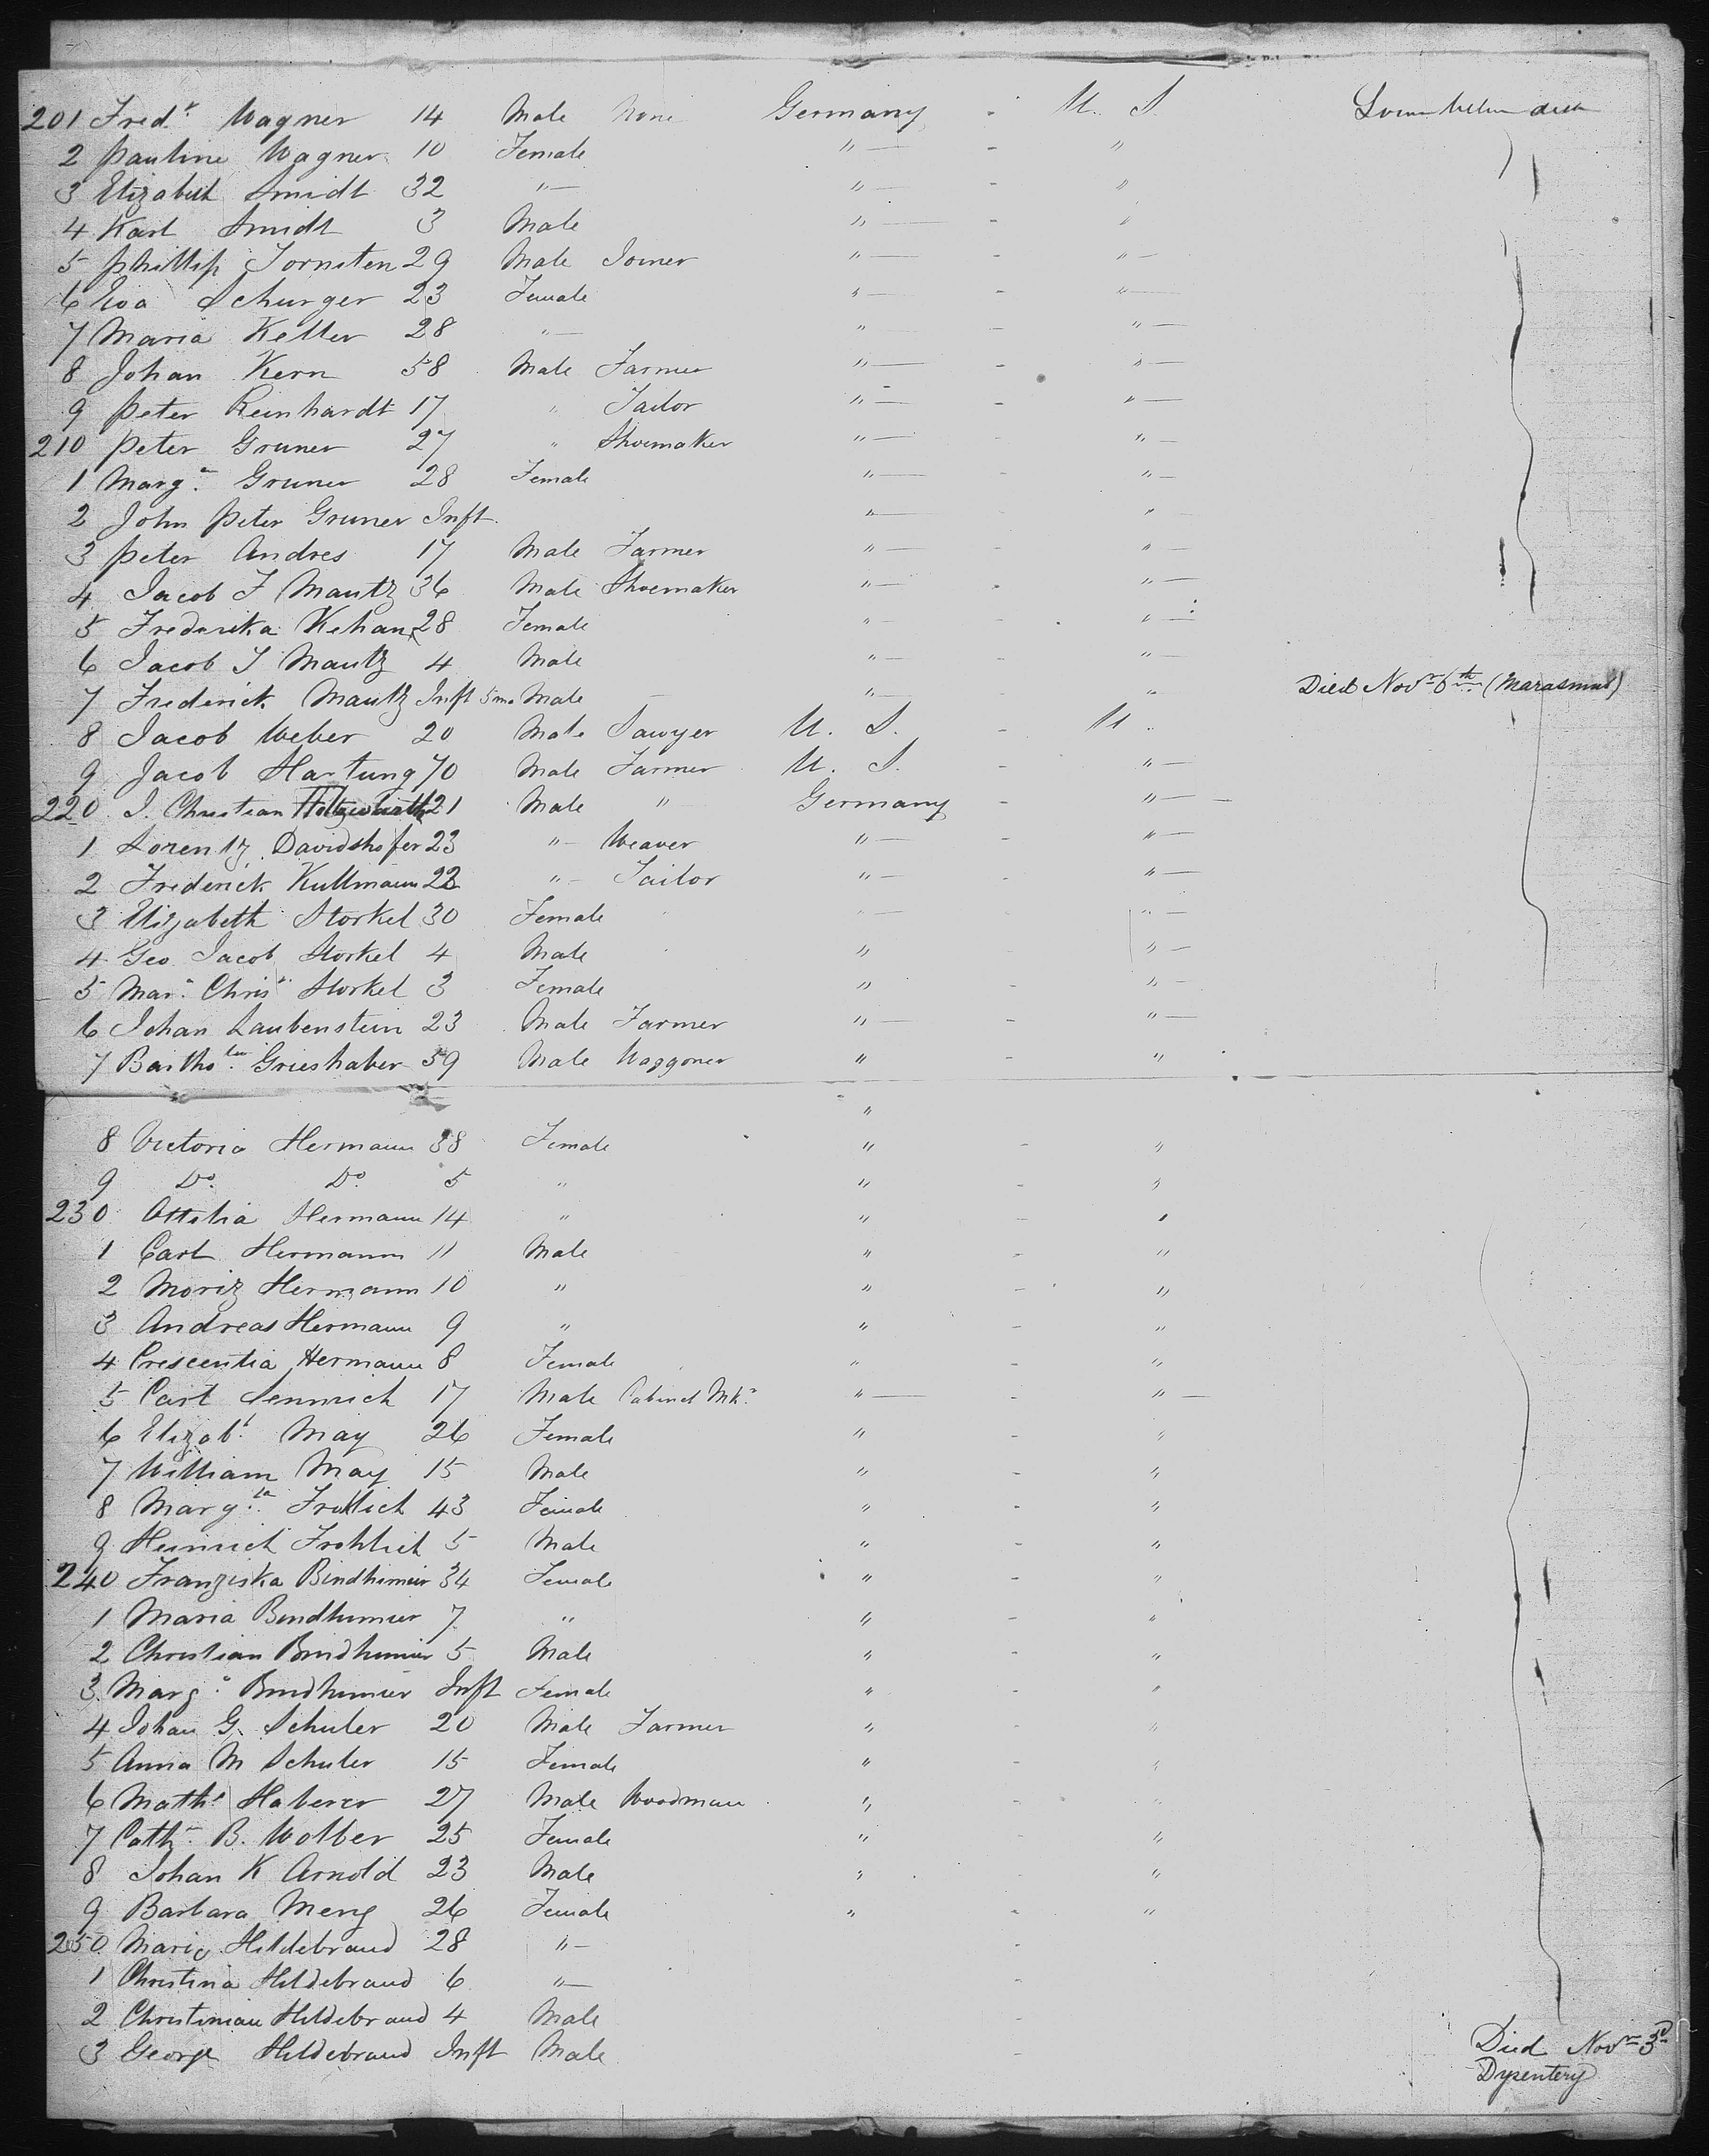 201 Fred.k Wagner 14 Male None Germany - U. S. Lower between deck
2 Pauline Wagner 10 Female " - "
3 Elizabeth Smidt 32 " " - "
4 Karl Smidt 3 Male " - "
5 Phillip Tornsten 29 Male Joiner " - "
6 Eva Schurger 23 Female " - "
7 Maria Keller 28 " " - "
8 Johan Kern 58 Male Farmer " - "
9 Peter Reinhardt 17 " Tailor " - "
210 Peter Gruner 27 " Shoemaker " - "
1 Marg.a Gruner 28 Female " - "
2 John Peter Gruner Inft. " "
3 Peter Andres 17 Male Farmer " - "
4 Jacob F Mautz 36 Male Shoemaker " - "
5 Frederika Kehan 28 Female " - "
6 Jacob F Mautz 4 Male " - "
7 Frederick Mautz Inft 5 mo Male " - " Died Novr 6th (Marasmus)
8 Jacob Weber 20 Male Sawyer U. S. - U.
9 Jacob Hartung 70 Male Farmer U. S. - "
220 J. Christian 21 Male " Germany - "
1 Lorentz Davidshofer 23 " Weaver " - "
2 Frederick Kullmann 22 " Tailor " - "
3 Elizabeth Storkel 30 Female " - "
4 Geo Jacob Storkel 4 Male " - "
5 Mar.a Chris.a Storkel 3 Female " - "
6 Johan Laubenstein 23 Male Farmer " - "
7 Bartho.lw Grieshaber 59 Male Waggoner " - "
"
8 Victoria Hermann 38 Female " - "
9 Do. Do. 5 " " - "
230 Ottilia Hermann 14 " " - "
1 Carl Hermann 11 Male " - "
2 Moriz Hermann 10 " " - "
3 Andreas Hermann 9 " " - "
4 Crescentia Hermann 8 Female " - "
5 Carl Semmich 17 Male Cabinet Mkr " - "
6 Elizab.t May 26 Female " - "
7 William May 15 Male " - "
8 Marg.ta Frohlich 43 Female " - "
9 Heinrich Frohlich 5 Male " - "
240 Franziska Bindhimier 34 Female " - "
1 Maria Bindhimier 7 " " - "
2 Christian Bindhimier 5 Male " - "
3 Marg.a Bindhimier Inft Female " - "
4 Johan G. Schuler 20 Male Farmer " - "
5 Anna M Schuler 15 Female " - "
6 Math.s Haberer 27 Male Woodman " - "
7 Cath. B. Wolber 25 Female " - "
8 Johan K Arnold 23 Male " - "
9 Barbara Meng 26 Female " - "
250 Maria Hildebrand 28 " -
1 Christina Hildebrand 6 " -
2 Christinian Hildebrand 4 Male -
3 George Hildebrand Inft Male - Died Novr 3d
Dysentery